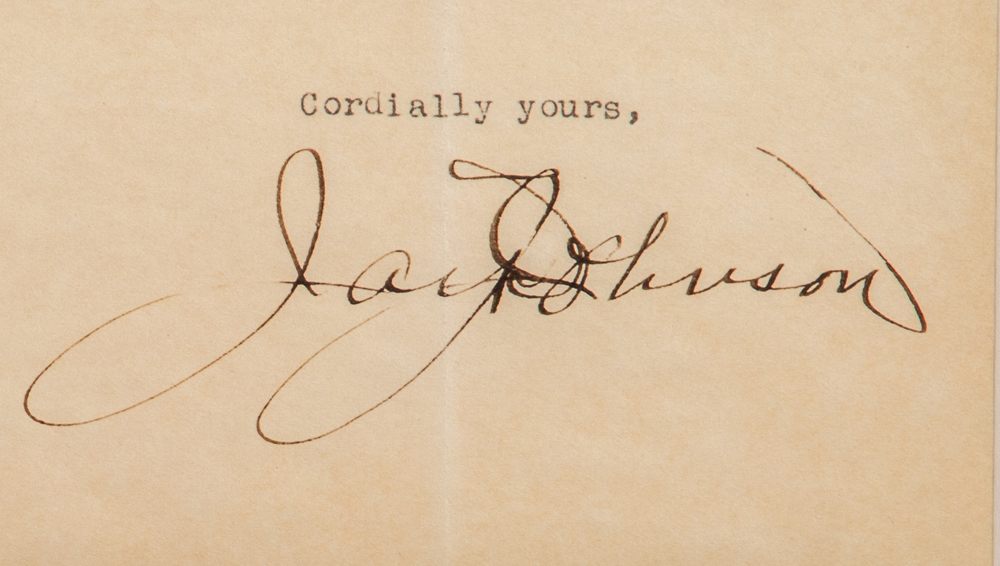 Cordially yours,
Jack Johnson